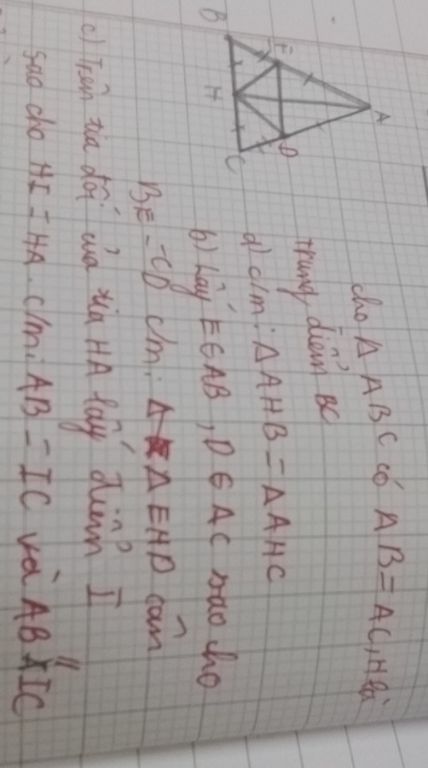 cho Δ ABC có AB = AC, H là
trung điểm BC
a) c/m: ΔAHB = ΔAHC
b) Lấy E∈AB, D∈AC sao cho
BE = CD c/m: Δ ΔEHD cân
c) Trên tia đối của tia HA lấy điểm I
sao cho HI = HA. c/m: AB = IC và AB // IC
A
B
C
D
E
H